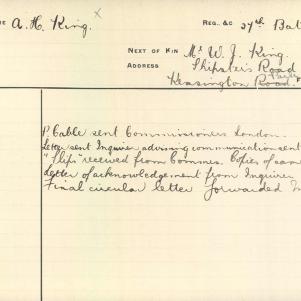 A. H. King. REG. &C 27th Bat
NEXT OF KIN Mr W. J. King.
ADDRESS Shipsters Road
Kensington Road.
P. Cable sent Commissioners London.
Letter sent Inquirer advising communication sent
"Slip" received from Commrs. Copies of same
Letter of acknowledgement from Inquirer
Final circular letter forwarded In